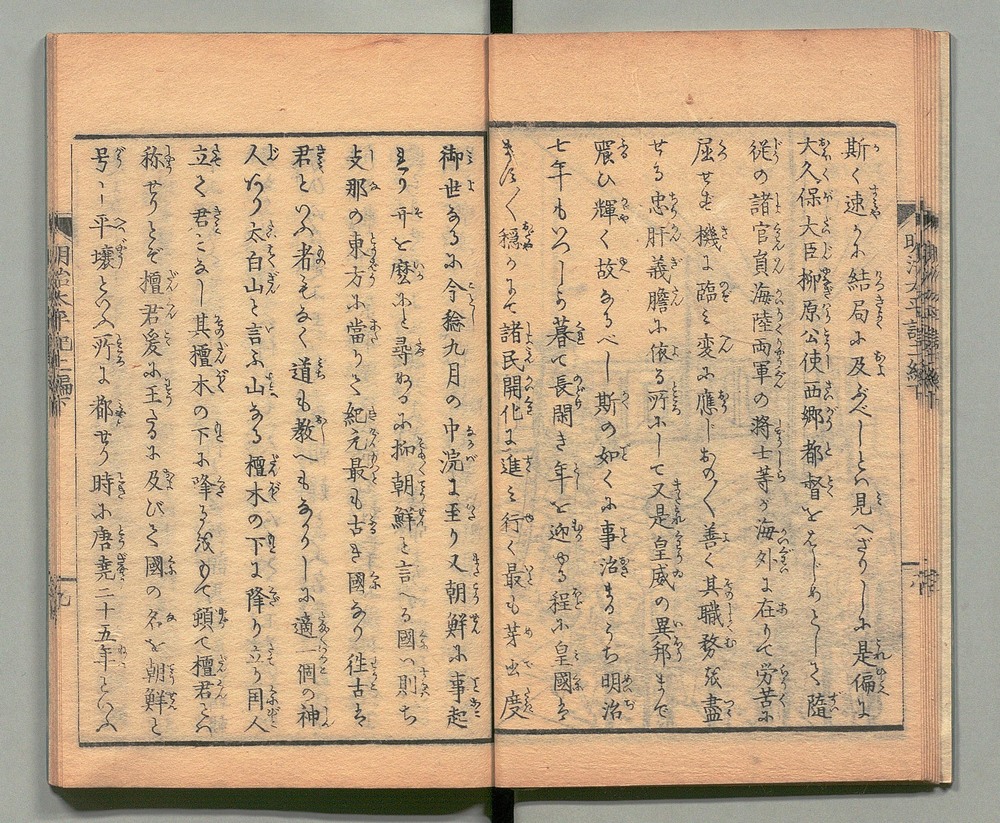 斯く速かに結局に及ぶべしとは見へざりしに是偏に
大久保大臣柳原公使西郷都督をはじめとして随
従の諸官員海陸両軍の将士等が海外に在りて労苦に
屈せず機に臨ミ変に應じおの〱善く其職務を盡
せる忠肝義膽に依る所にして又是皇威の異邦まで
震ひ輝く故なるべし斯の如くに事治まるうち明治
七年もいつしか暮て長閑き年を迎ゆる程に皇國は
ます〱穏かにて諸民開化に進ミ行く最も芽出度
御世なるに今稔九月の中浣に至り又朝鮮に事起
れり开を麼にと尋ぬるに抑朝鮮と言へる国ハ則ち
支那の東方に當りて紀元最も古き國なり往古は
君といふ者もなく道も教へもなかりしに適一個の神
人あり太白山と言ふ山なる檀木の下に降り立り国人
立て君となし其檀木の下に降るを以て頓て檀君とハ
称せりとぞ檀君爰に王たるに及びて國の名を朝鮮と
号し平壌といふ所に都せり時に唐堯二十五年といふ
明治太平記十一編下
九